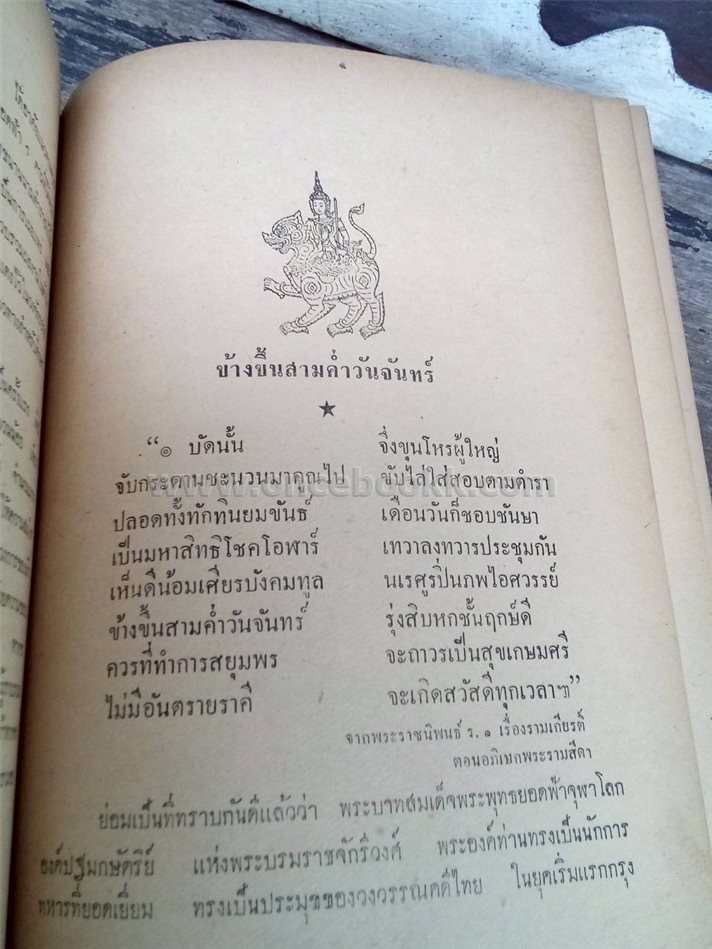 ข้างขึ้นสามค่ำวันจันทร์
“๏ บัดนั้น จึ่งขุนโหรผู้ใหญ่
จับกระดานชะนวนมาคูณไป ขับไล่ใส่สอบตามตำรา
ปลอดทั้งทักทินยมขันธ์ เดือนวันก็ชอบชันษา
เป็นมหาสิทธิโชคโอฬาร์ เทวาลงทวารประชุมกัน
เห็นดีน้อมเศียรบังคมทูล นเรศูรปิ่นภพไอศวรรย์
ข้างขึ้นสามค่ำวันจันทร์ รุ่งสิบหกชั้นฤกษ์ดี
ควรที่ทำการสยุมพร จะถาวรเป็นสุขเกษมศรี
ไม่มีอันตรายราคี จะเกิดสวัสดีทุกเวลาฯ”
จากพระราชนิพนธ์ ร. ๑ เรื่องรามเกียรติ์
ตอนอภิเษกพระรามสีดา
ย่อมเป็นที่ทราบกันดีแล้วว่า พระบาทสมเด็จพระพุทธยอดฟ้าจุฬาโลก
องค์ปฐมกษัตริย์ แห่งพระบรมราชจักรีวงศ์ พระองค์ท่านทรงเป็นนักการ
ทหารที่ยอดเยี่ยม ทรงเป็นประมุขของวงวรรณคดีไทย ในยุคเริ่มแรกกรุง